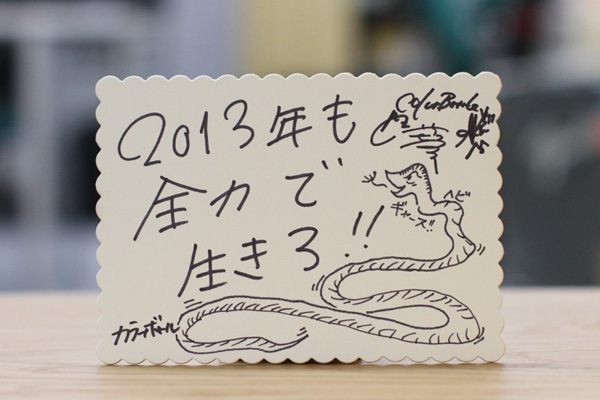 2013年も
全力で
生きろ!!
ヘビ
ギャース!!
カラーボール